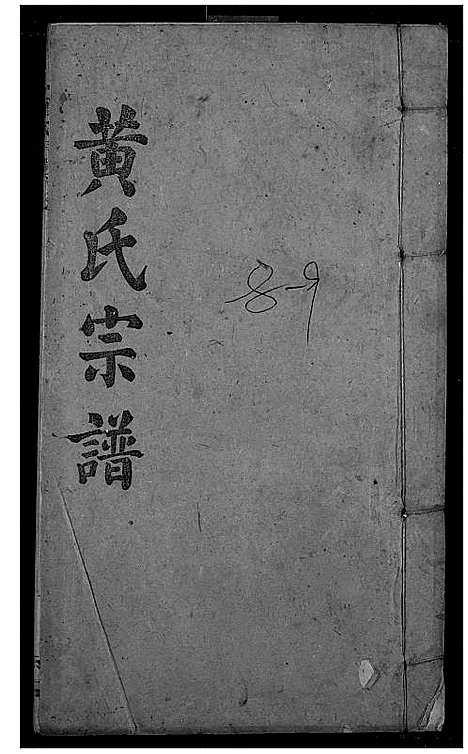 黃氏宗譜
8-9